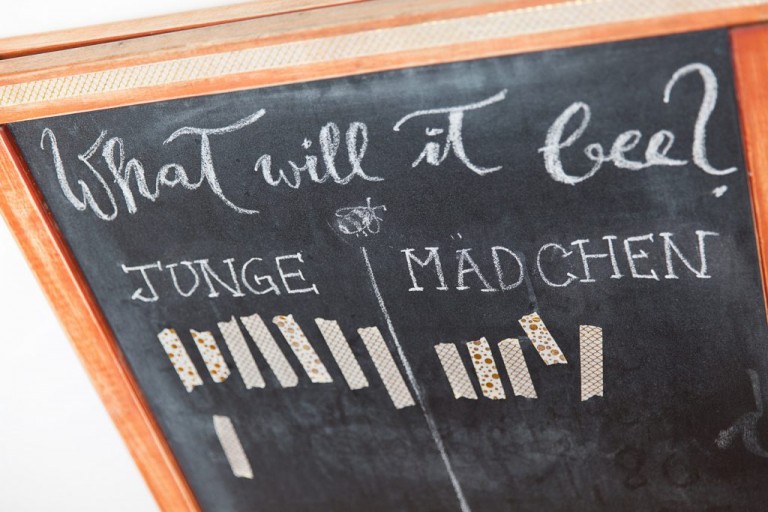 What will it bee?
JUNGE MÄDCHEN